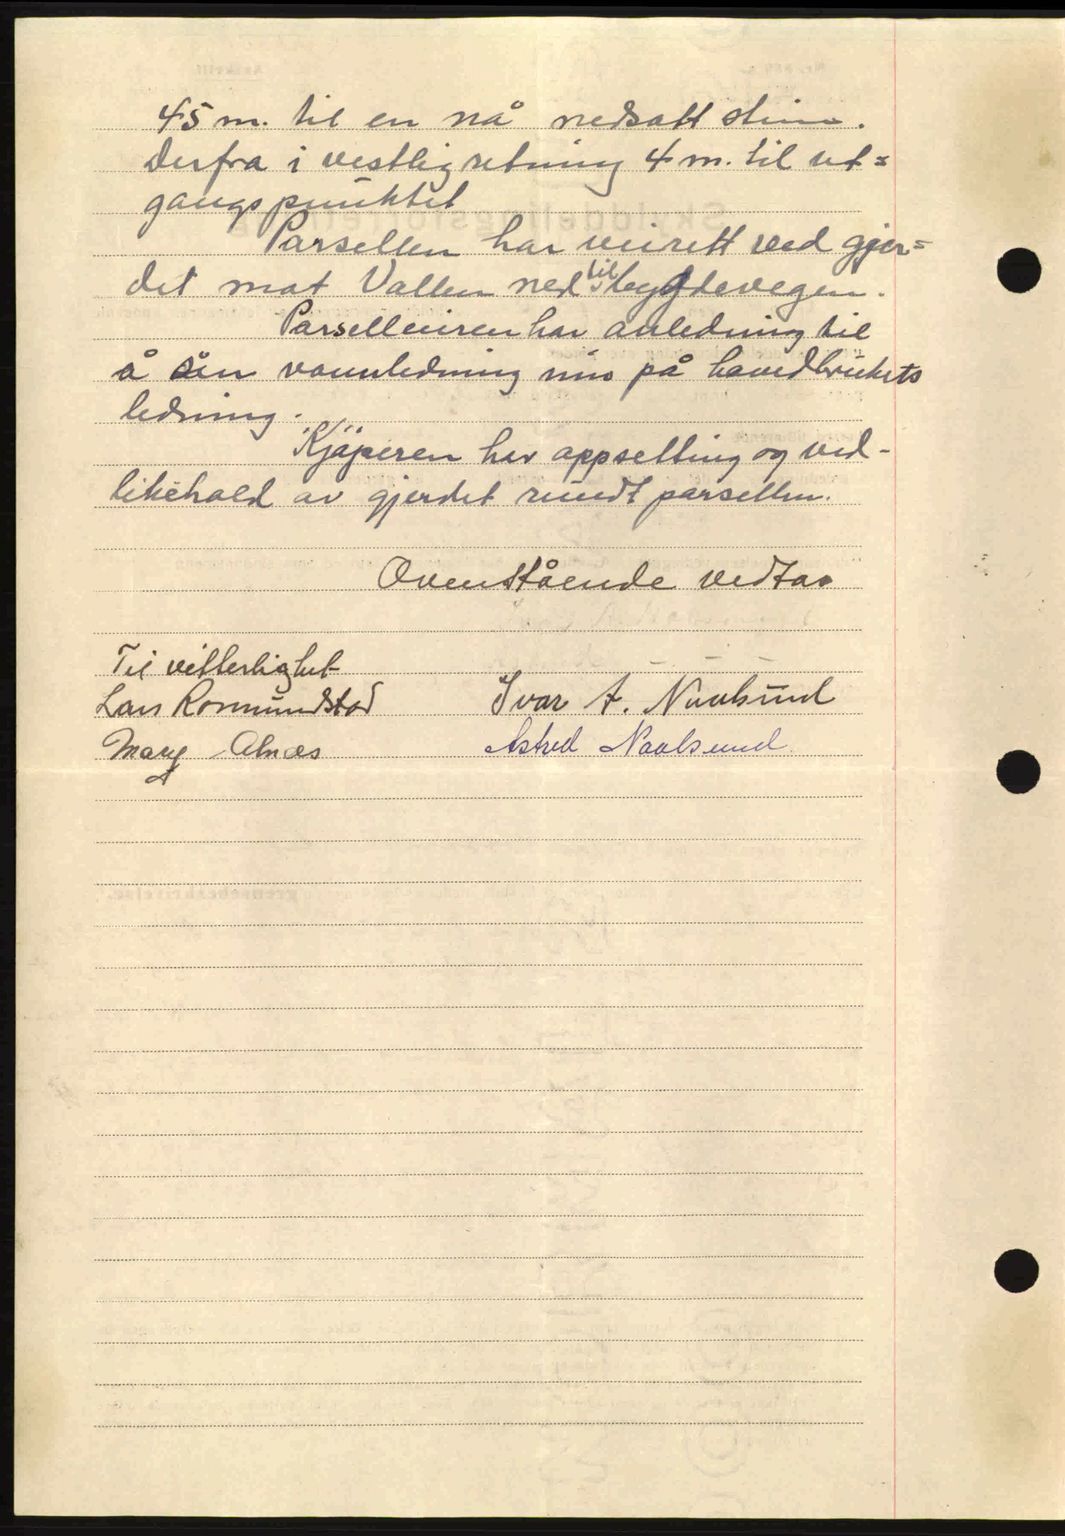 45 m. til en nå nedsatt stein.
Derfra i vestlig retning 4 m. til ut=
gangspunktet
Parsellen har veirett ved gjer=
det mot Vollen ned til bygdevegen.
Parselleieren har anledning til
å vannledning inn på hovedbrukets
ledning.
Kjøperen har oppsetting og ved-
likehold av gjerdet rundt parsellen.
Ovenstående vedtas
Til vitterlighet
Lars Romundstad
Ivar A. Navlsund
Mary Alnæs
Astrid Navlsund